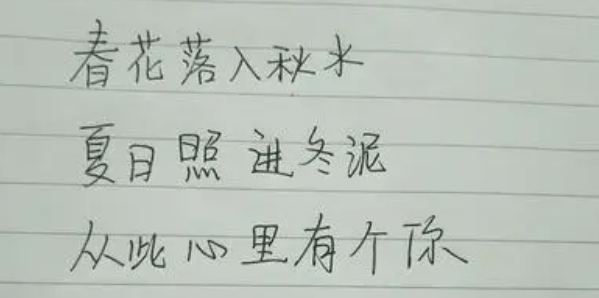 春花落入秋水
夏日照进冬泥
从此心里有个你